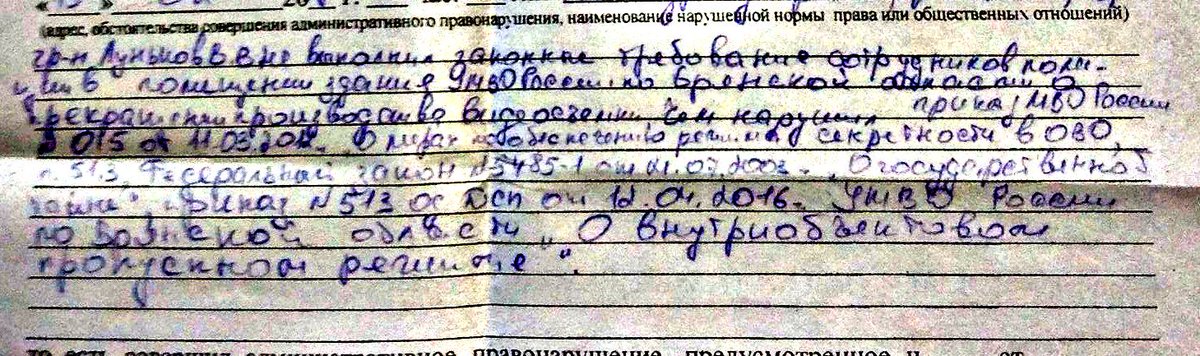 (адрес, обстоятельства совершения административного правонарушения, наименование нарушенной нормы права или общественных отношений)
гр-н Луньков В.В не выполнил законные требование сотрудников поли-
ции в помещении здания УМВД России по Брянской области о
прекращении производства видеосъемки, чем нарушил приказ МВД России
015 от 11.03.2012. О мерах по обеспечению режима секретности в ОВО,
п. 51.3, Федеральный закон №5485-1 от 21.07. „О государственной
тайне", приказ №513 ос Дсп от 12.04.2016. УМВД России
по Брянской области „О внутриобъектовом
пропускном режиме".
то есть совершил административное правонарушение, предусмотренное ч. ст.